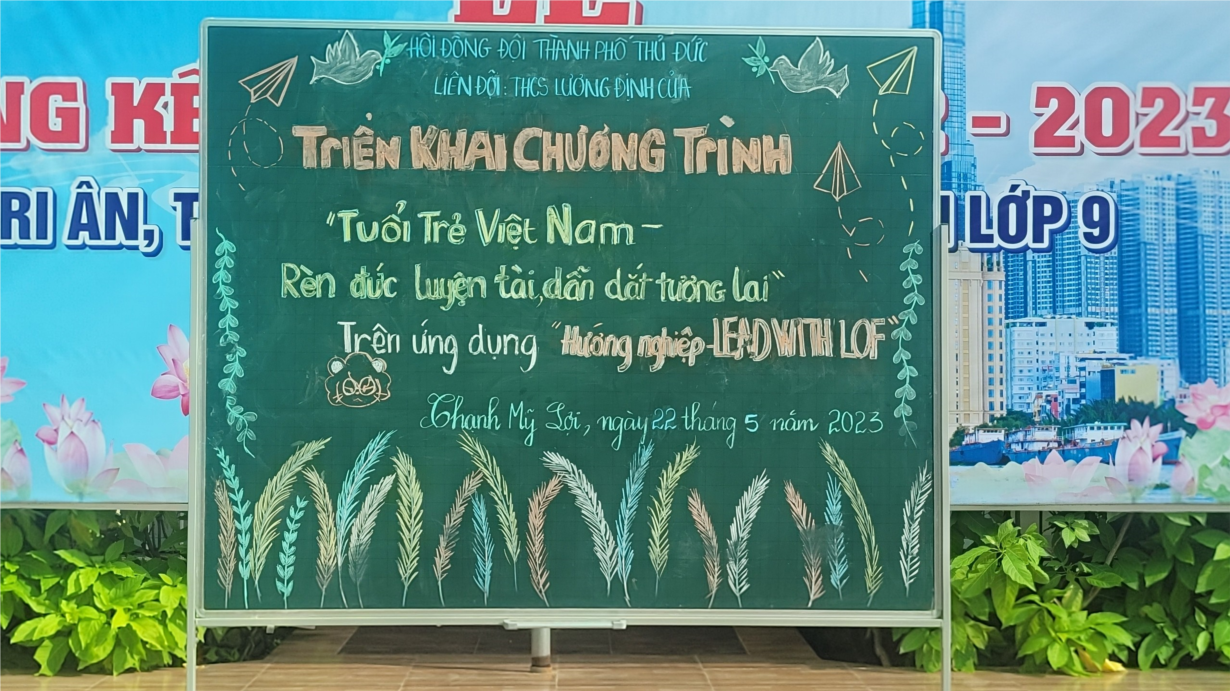 LỄ
NG KẾ
- 2023
RI ÂN, T
LỚP 9
HỘI ĐỒNG ĐỘI THÀNH PHỐ THỦ ĐỨC
LIÊN ĐỘI: THCS LƯƠNG ĐỊNH CỦA
TRIỂN KHAI CHƯƠNG TRÌNH
"Tuổi Trẻ Việt Nam -
Rèn đức luyện tài, dẫn dắt tương lai"
Trên ứng dụng "Hướng nghiệp-LEAD WITH LOF"
Thạnh Mỹ Lợi, ngày 22 tháng 5 năm 2023